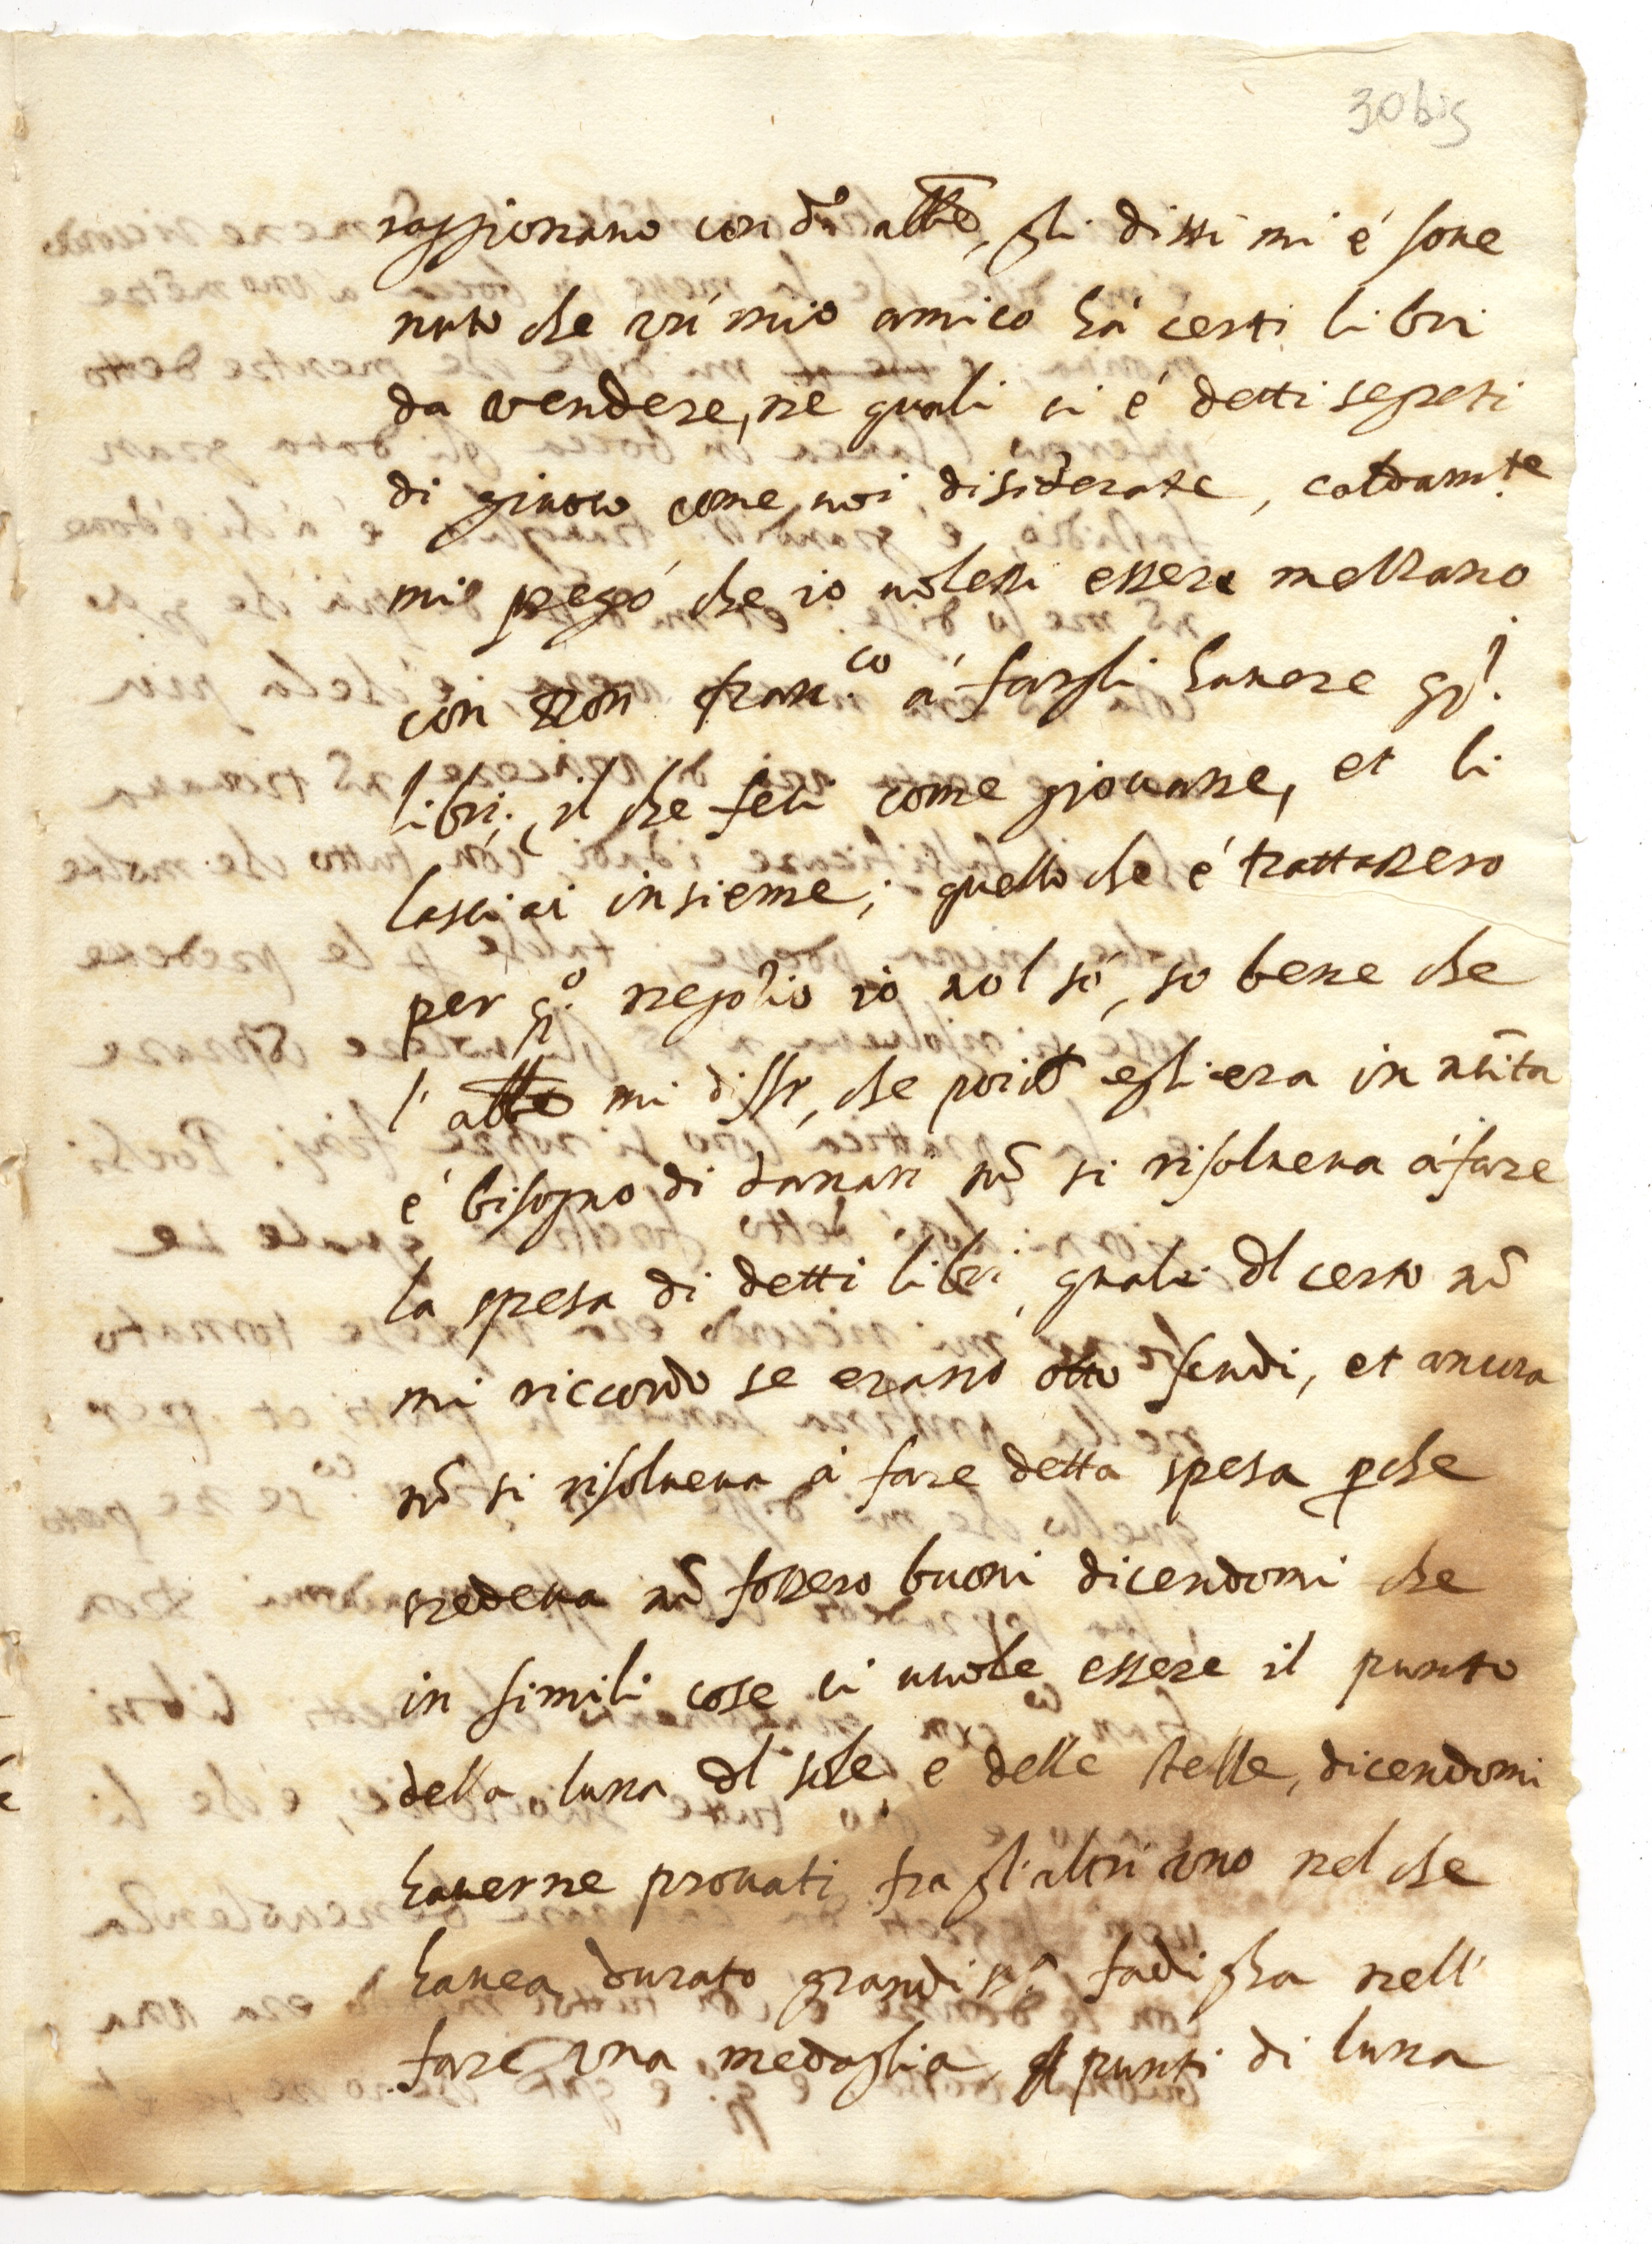 30 bis
raggionavo con d.º abbe, gli dissi mi é sove
nuto che un mio amico há certi libri
da vendere, ne quali vi é detti segreti
di giuoco come voi disiderate, caldam.te
mi pregó che io volessi essere mezzano
con Don Fran.co á fargli havere q.i
libri; il che feci come giovane, et li
lasciai insieme; quello che é trattassero
per q.º negotio io nol só, so bene che
l'abbe mi disse, che poiché egli era in
é bisogno di danari nõ si risolveva á fare
la spesa di detti libri, quali dl certo nõ
mi riccordo se erano otto scudi, et ancora
nõ si risolveva á fare detta spesa pche
credeva nõ fossero buoni dicendomi che
in simili cose ci vuole essere il punto
della luna dl sole e delle stelle, dicendomi
haverne provati fra gl'altri uno nel che
havea durato grandiss.ª fadigha nell'
fare una medaglia, punti di luna